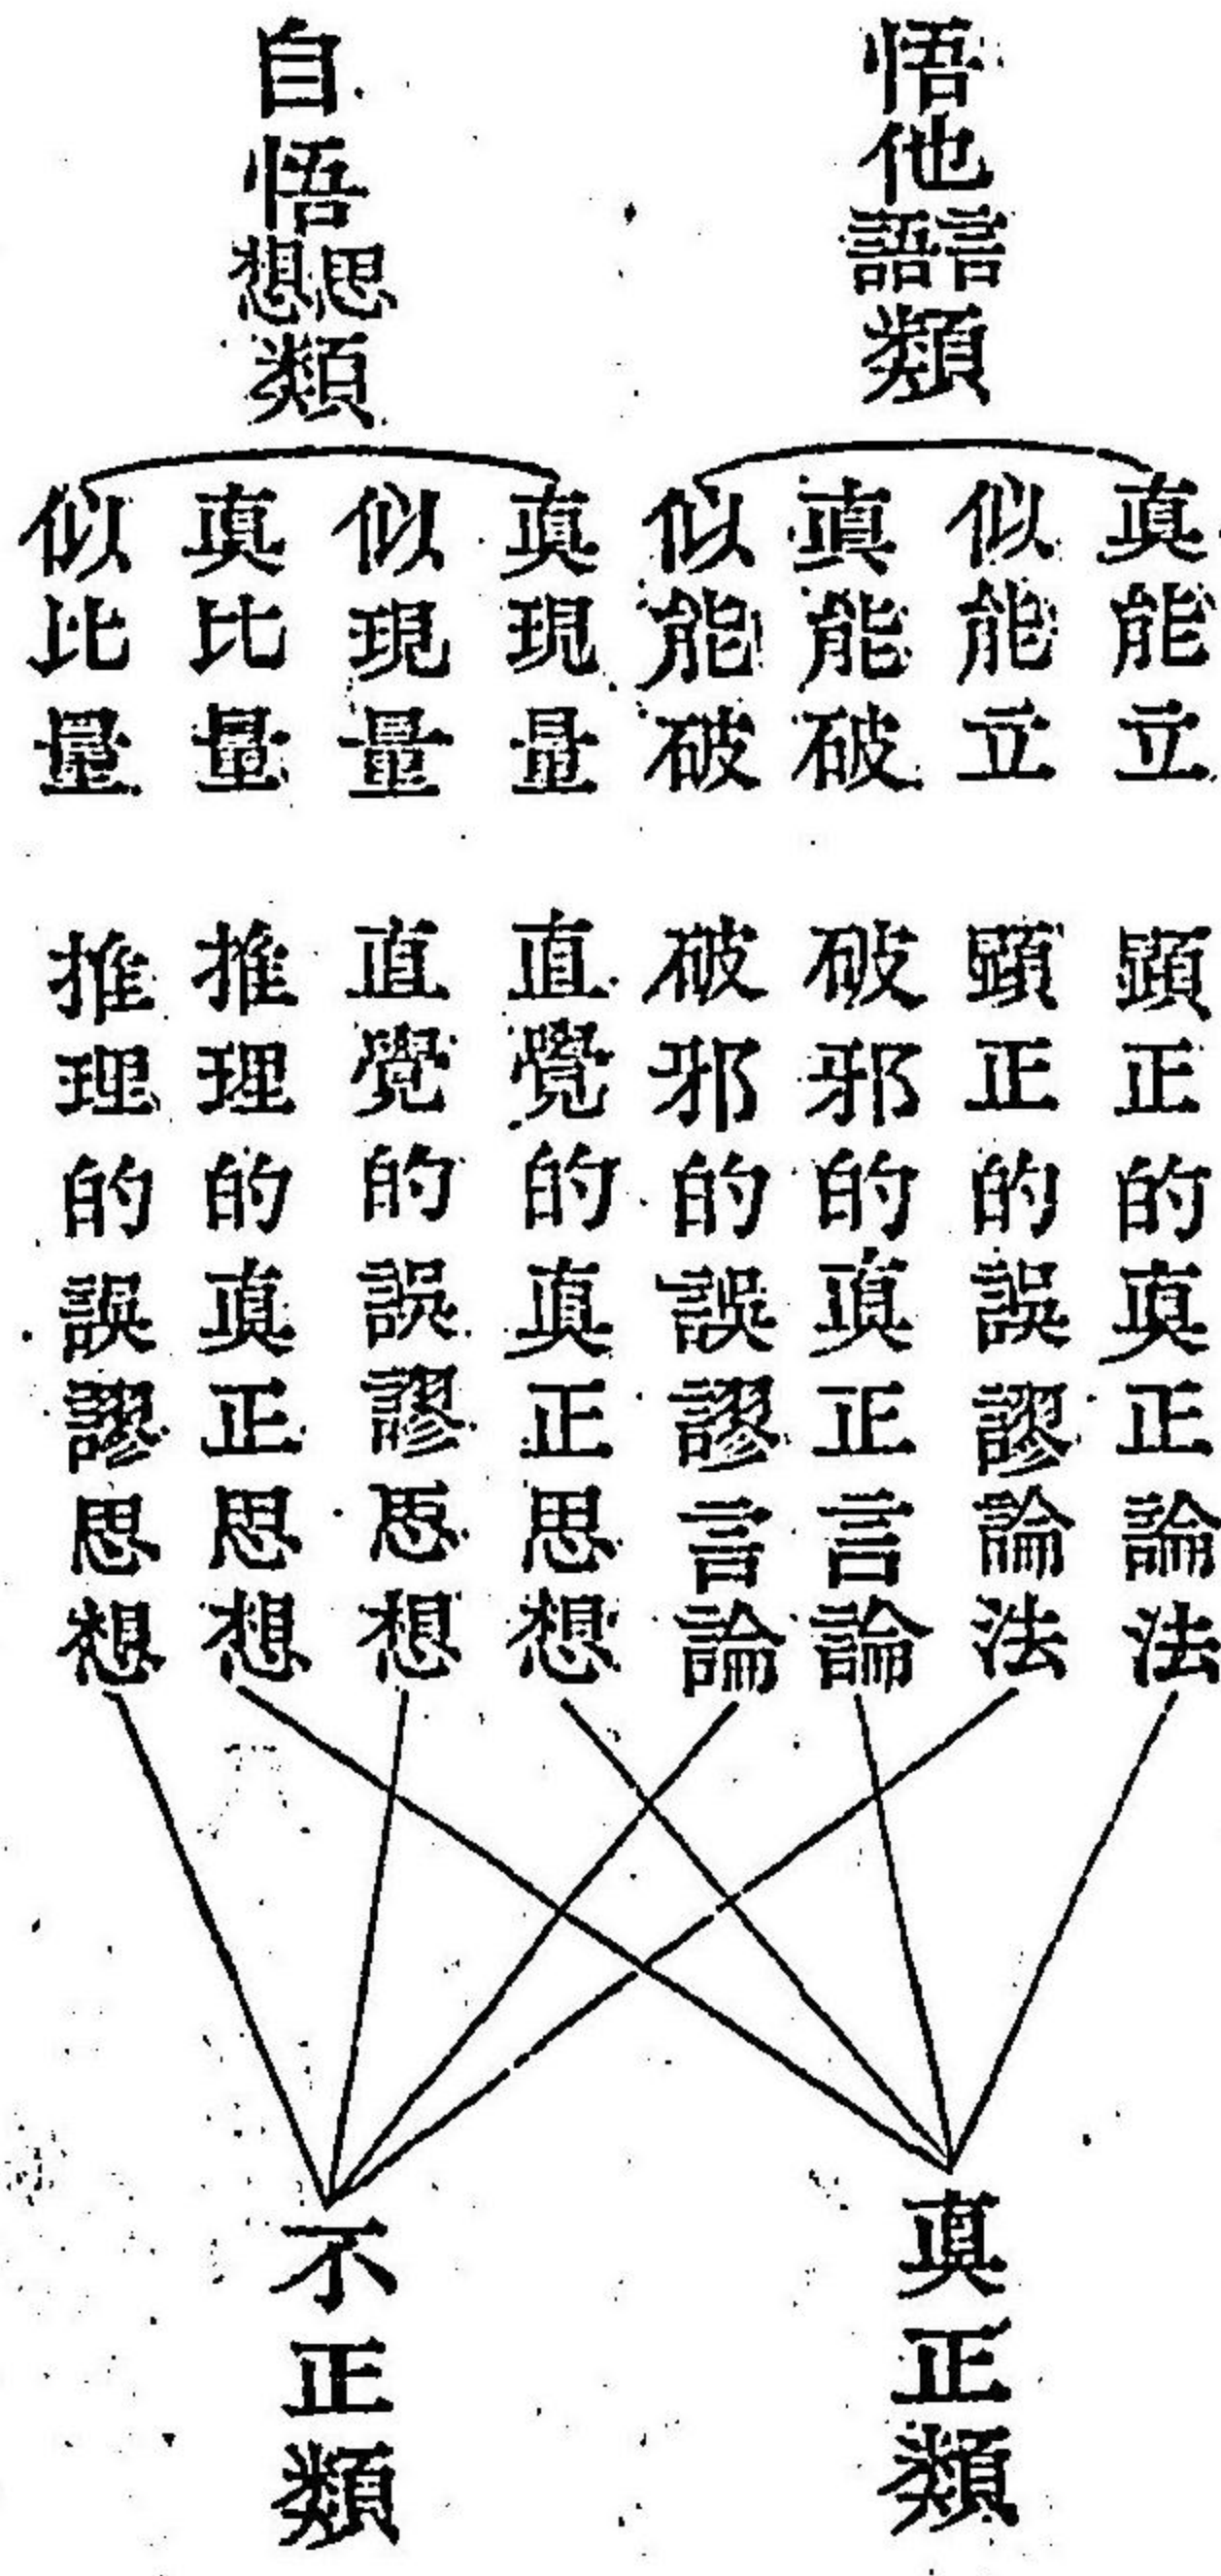 悟他言語類
真能立 顕正的真正論法
似能立 顕正的誤謬論法
真能破 破邪的真正言論
似能破 破邪的誤謬言論
自悟思想類
真現量 直覺的真正思想
似現量 直覺的誤謬思想
真比量 推理的真正思想
似比量 推理的誤謬思想
真正類
不正類